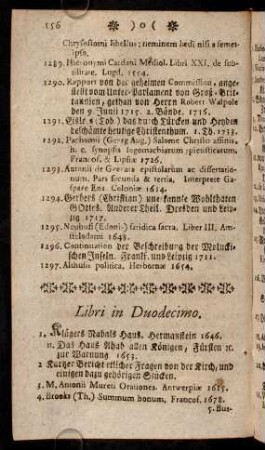 156 )o(
Chrysostomi libellus; neminem lædi nisi a semet-
ipso.
1289. Hieronymi Cardani Mediol. Libri XXI. de sub-
tilitate. Lugd. 1554.
1290. Rapport von der geheimen Commission, ange-
stellt vom Unter-Parlament von Groß-Brit-
tannien, gethan von Herrn Robert Walpole
den 9 Junii 1715. 2. Bände. 1716.
1291. (Tob.) das durch Türcken und Heyden
beschämte heutige Christenthum. 1. Th. 1733.
1292. Pachomii (Georg Aug.) Salome Christo affinis,
h. e. synopsis
Francof. & Lipsiæ 1726.
1293. de Gevara epistolarum ac dissertatio-
num. Pars secunda & tertia, Interprete Gas-
pare Ens. Coloniæ 1614.
1294. Gerbers (Christian) une kannte Wohlthaten
GOttes. Anderer Theil. Dresden und Leip-
zig 1717.
1295. Neuhusi (Edoni) fatidica sacra. Liber III. Am-
stelodami 1648.
1296. Continuation der Beschreibung der Moluckі-
schen Inseln. Franckf. und Leipzig 1711.
1297. Althusii politica, Herbornæ 1654.
Libri in Duodecimo.
1. Nabals Hauß. Hermanstein 1646.
it. Das Hauß Ahab allen Königen, Fürsten ꝛc.
zur Warnung 1653.
2 Kurtzer Bericht etlicher Fragen von der Kirch, und
einigen dazu gehörigen Stücken.
3. M. Antonii Mureti Orationes. Antwerpiæ 1615.
4. Brooks (Th.) Summum bonum, Francof. 1678.
5. Bus-